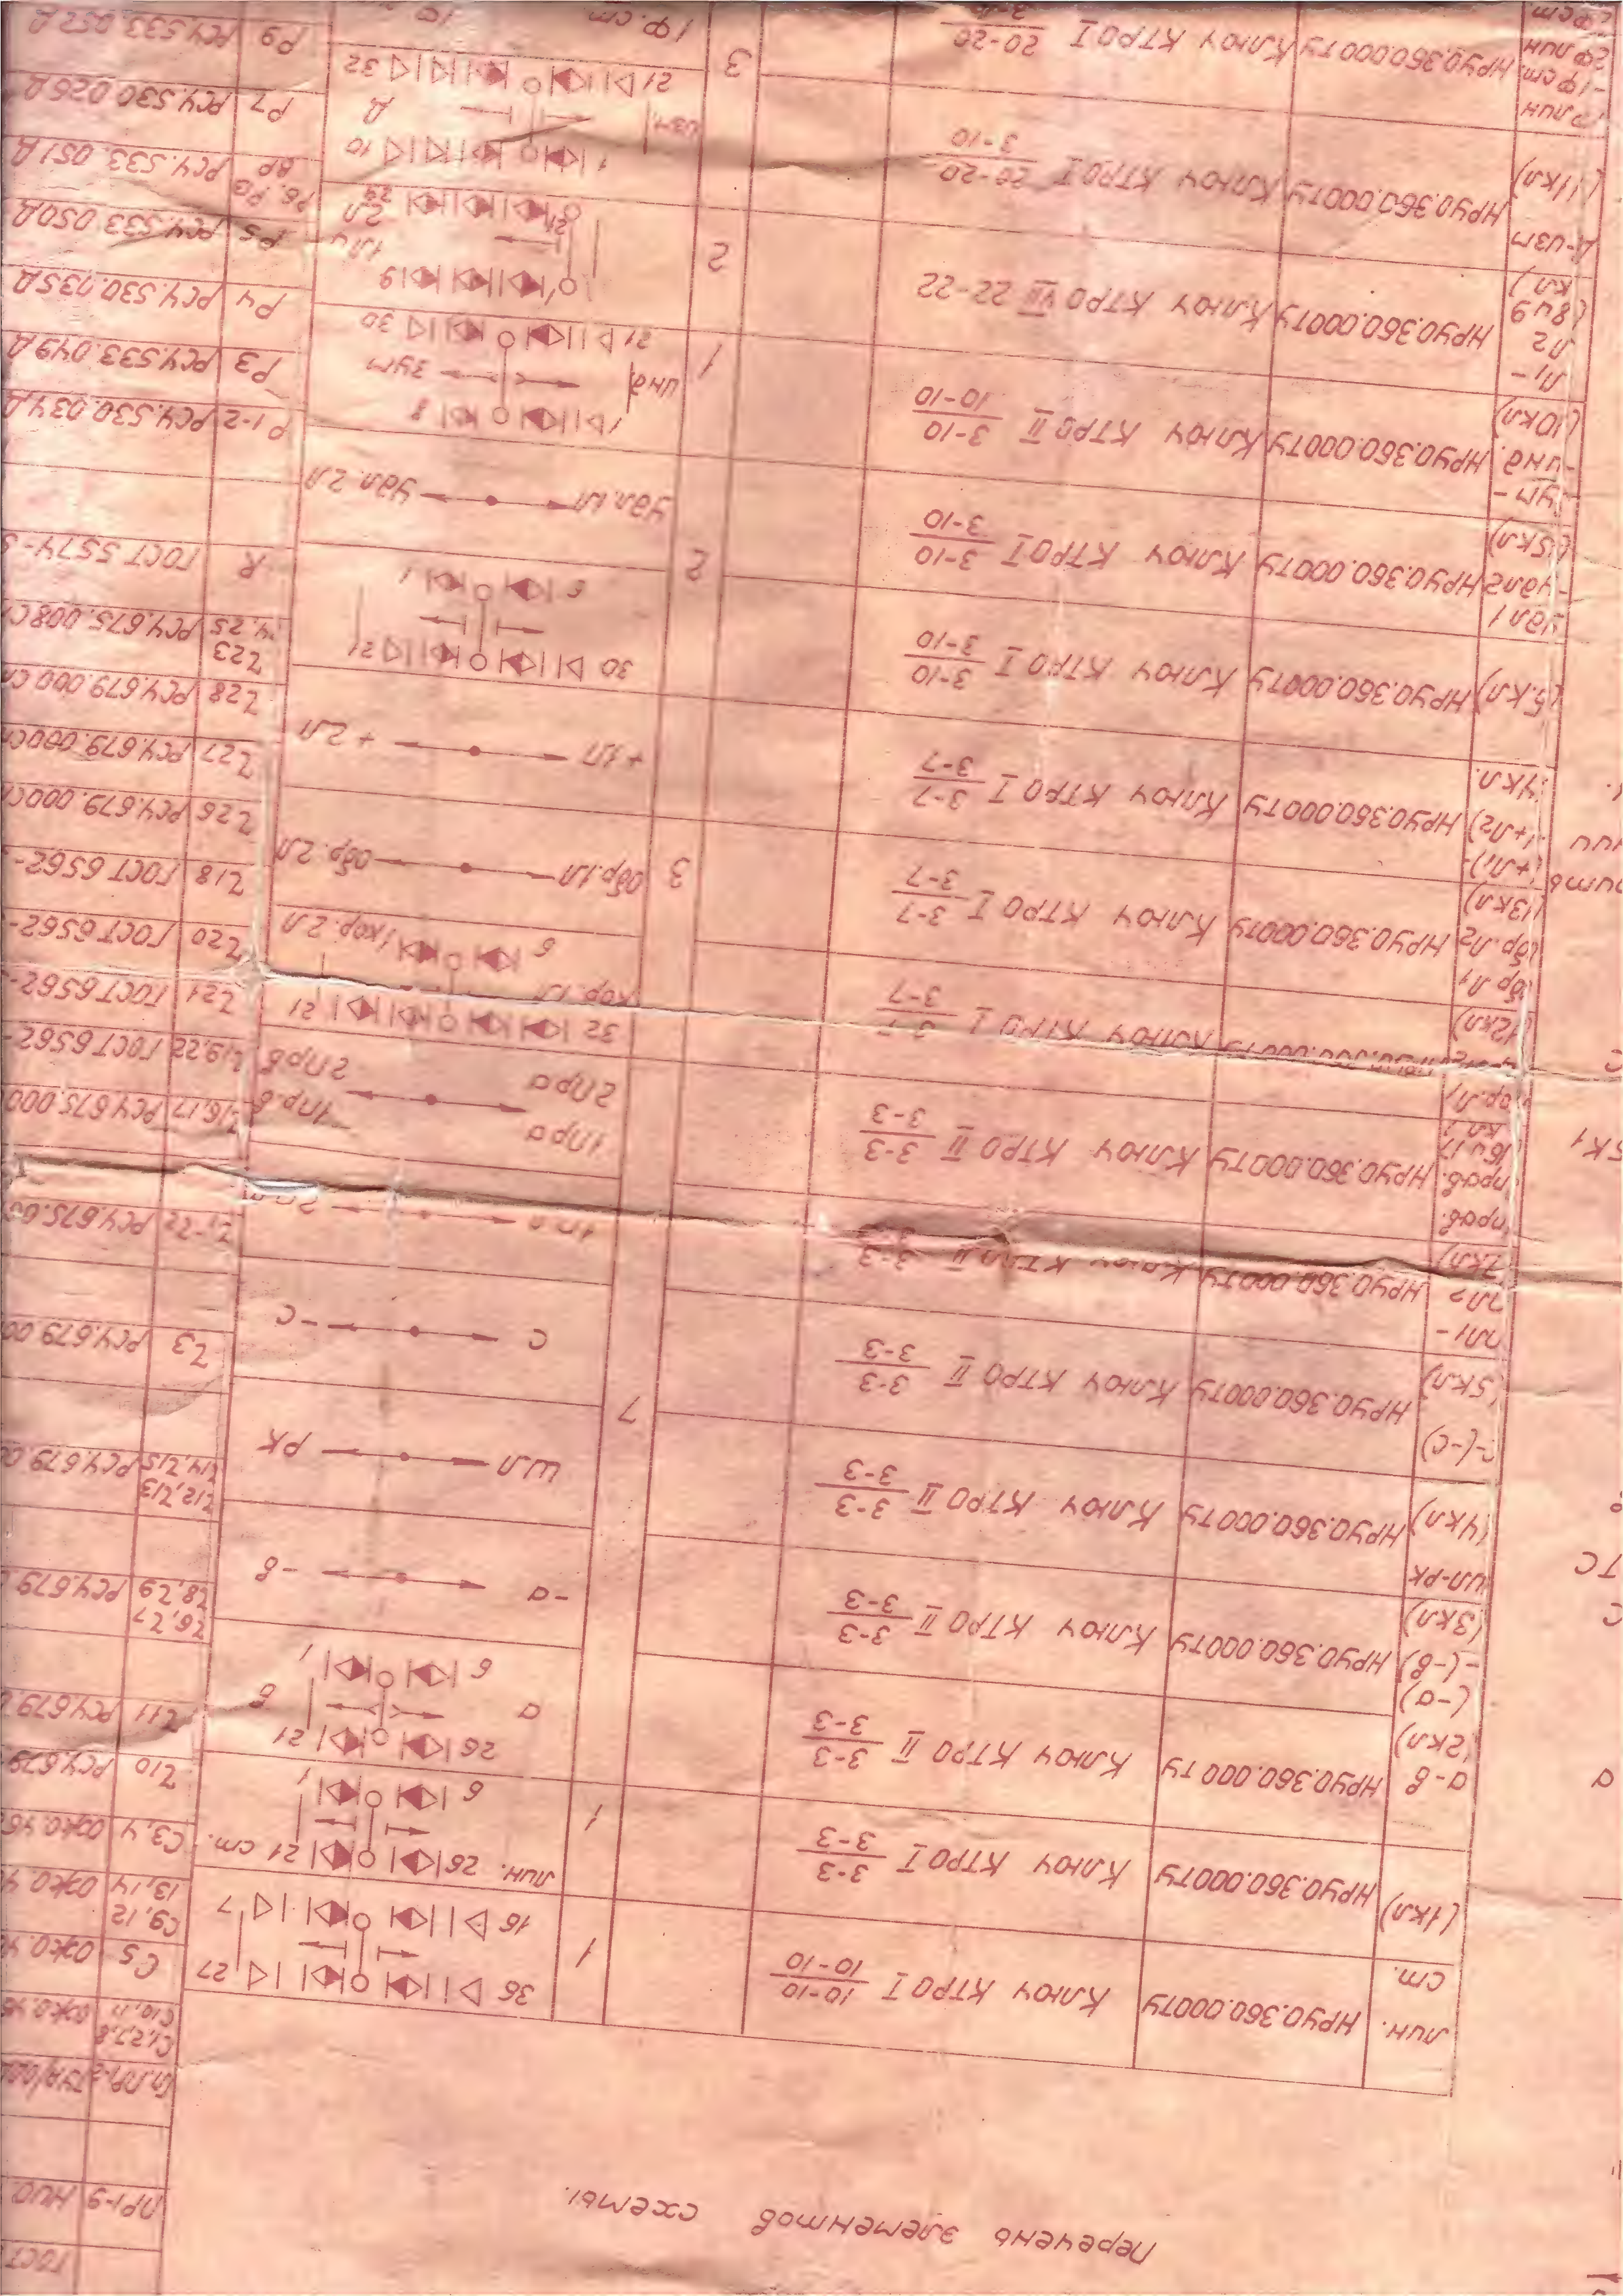 Перечень элементов схемы.
лин.
ст.
НРУ0.360.000ТУ Ключ КТРО I 10-10
10-10
1
36 27
16 7
(1кл)
НРУ0.360.000ТУ Ключ КТРО I 3-3
3-3
1
лин. 26 21 ст.
6 1
а-в
(2кл)
НРУ0.360.000ТУ Ключ КТРО II 3-3
3-3
7
26 21
а в
6 1
(-а)
-(-в)
(3кл)
НРУ0.360.000ТУ Ключ КТРО II 3-3
3-3
-а -в
шл-рк
(4кл)
НРУ0.360.000ТУ Ключ КТРО II 3-3
3-3
шл рк
с-(-с)
(5кл)
НРУ0.360.000ТУ Ключ КТРО II 3-3
3-3
с -с
пл1-
пл2
7кл)
НРУ0.360.000ТУ Ключ КТРО II 3-3
3-3
1пл
прав.
прав.
16 и 17
кл)
НРУ0.360.000ТУ Ключ КТРО II 3-3
3-3
1пра 1пр.в
2пра 2прв
кор.л1
(12кл)
Ключ КТРО I 3-7
3-7
3
32 21
кор.1л кор.2л
6 1
обр л1
обр.л2
(13кл)
НРУ0.360.000ТУ Ключ КТРО I 3-7
3-7
обр.1л обр.2л
(+л1)-
(+л2)
14кл.
НРУ0.360.000ТУ Ключ КТРО I 3-7
3-7
+1л +2л
(5.кл)
НРУ0.360.000ТУ Ключ КТРО I 3-10
3-10
2
30 21
6 1
удл1
-удл2
(5кл)
НРУ0.360.000ТУ Ключ КТРО I 3-10
3-10
удл.1л удл.2л
зум-
-инд.
(10кл)
НРУ0.360.000ТУ Ключ КТРО II 3-10
10-10
1
1 8
инд зум
21 30
л1-
л2
(8и9
кл)
НРУ0.360.000ТУ Ключ КТРО VII 22-22
2
1 9
1л
2л
21 29
Д-изм
(11кл)
НРУ0.360.000ТУ Ключ КТРО I 20-20
3-10
3
1 10
изм. Д
21 32
1ф лин
-1ф ст.
2ф лин
НРУ0.360.000ТУ Ключ КТРО I 20-20
3-10
1ф.ст.
ГОСТ
ПР1-9 НИО
С1,2,7,8
С10,11 ОЖ0.46
С5 ОЖ0.4
С9,12
13,14 ОЖ0.4
С3,4 ОЖ0.46
Z10 РС4.679
Z11 РС4.679
Z6,Z7
Z8,Z9 РС4.679
Z12,Z13
Z14,Z15 РС4.679.00
Z3 РС4.679.00
Z1-Z2 РС4.675.00
Z16,17 РС4.675.000
Z19,22 ГОСТ 6562-
Z21 ГОСТ 6562-
Z20 ГОСТ 6562-
Z18 ГОСТ 6562-
Z26 РС4.679.000С
Z27 РС4.679.000С
Z28 РС4.679.000С
Z23
24,25 РС4.675.008С
R ГОСТ 5574-
Р1-2 РС4.530.034Д
Р3 РС4.533.049Д
Р4 РС4.530.035Д
Р5 РС4.533.050Д
Р6.Р8
ВР РС4.533.051Д
Р7 РС4.530.026Д
Р9 РС4.533.052Д